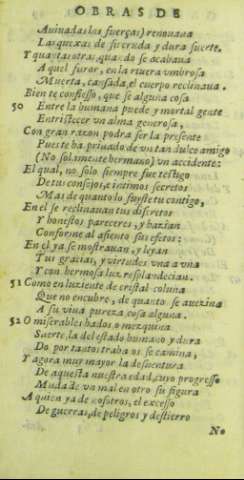 OBRAS DE
Auiuadas las fuerças) renouaua
Las quexas de su cruda y dura suerte.
Y quantas otras, quando se acabaua
A quel furor, en la riuera vmbrosa
Muerta, cansada, el cuerpo reclinaua.
Bien te confiesso, que si alguna cosa
50 Entre la humana puede y mortal gente
Entristecer vn alma generosa,
Con gran razon podra ser la presente
Pues te ha priuado de vn tan dulce amigo
(No solamente hermano) vn accidente:
El qual, no solo siempre fue testigo
De tus consejos, e intimos secretos
Mas de quanto lo fuyste tu contigo,
En el se reclinauan tus discretos
Y honestos pareceres, y hazian
Conforme al asiento sus efetos:
En el ya se mostrauan, y leyan
Tus gracias, y virtudes vna a vna
Y con hermosa luz resplandecian.
51 Como en luziente de cristal coluna
Que no encubre, de quanto se auezina
A su viua pureza cosa alguna.
52 O miserables hados o mezquina
Suerte, la del estado humano y dura
Do por tantos trabaios se camina,
Y agora muy mayor la desuentura
De aquesta nuestra edad, cuyo progresso
Muda de vn mal en otro su figura
A quien ya de nosotros, el excesso
De guerras, de peligros y destierro
No